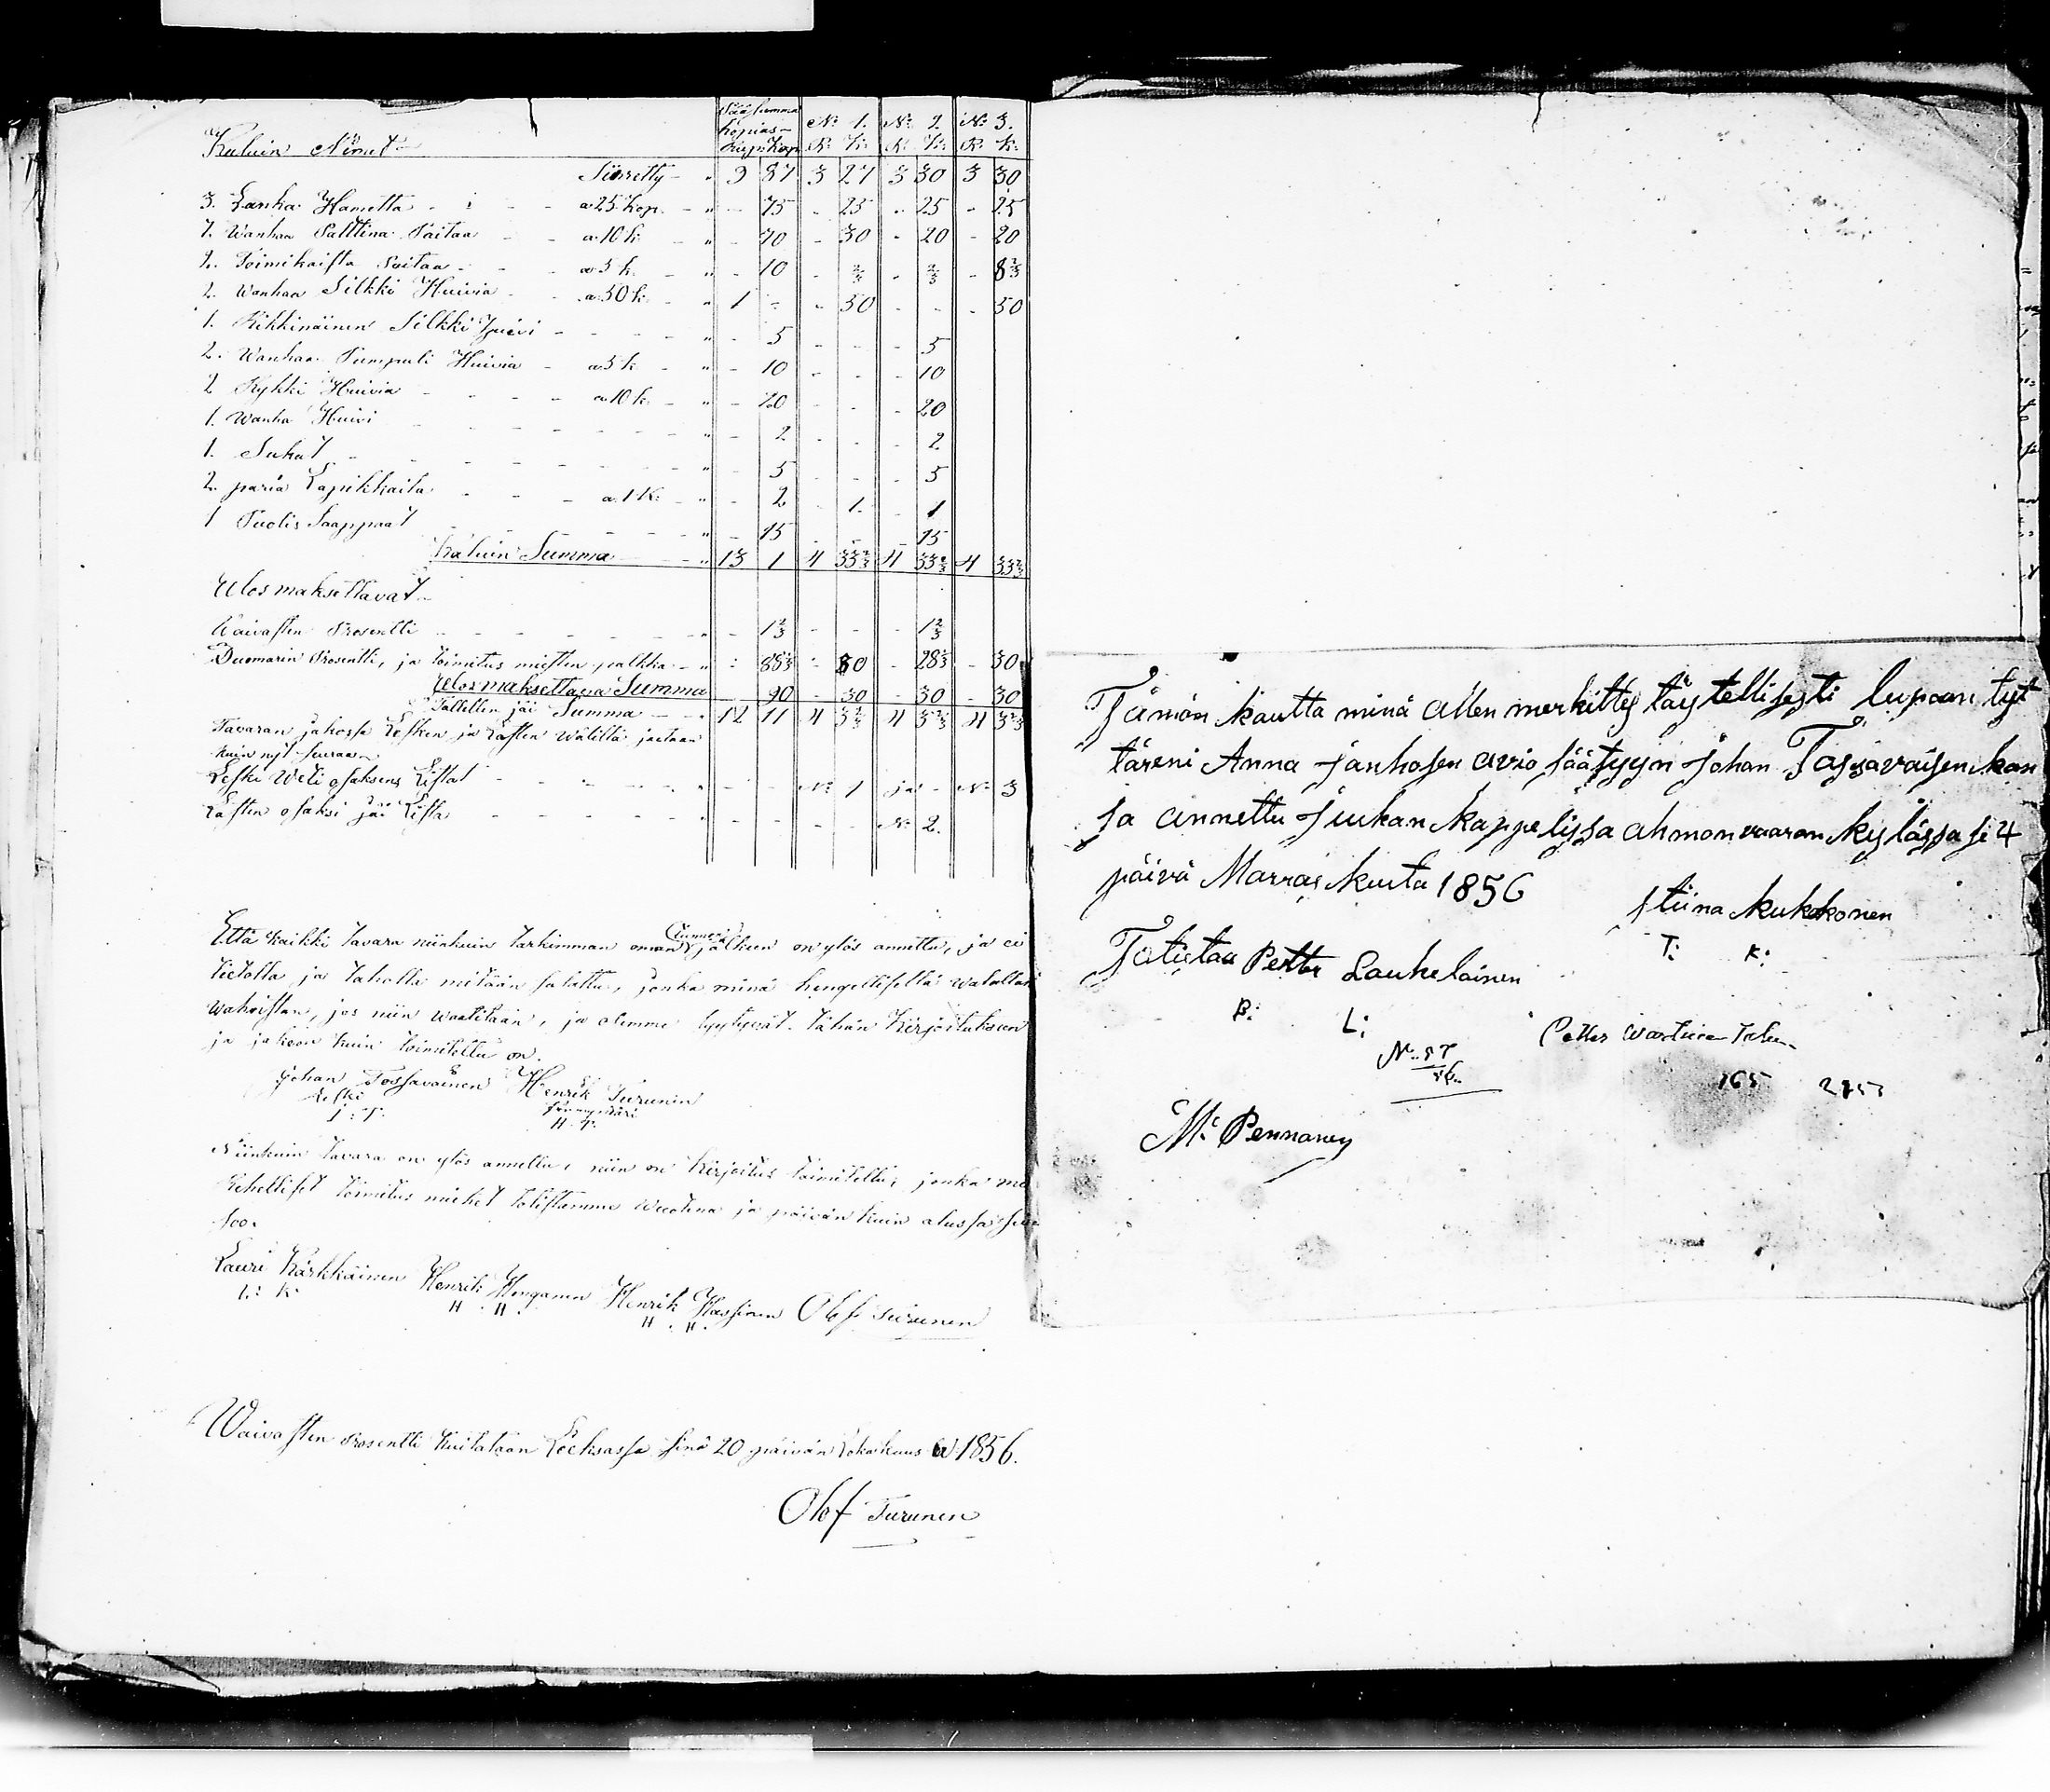 Kaluin Nimet Pää Summa Hopias- Rup: Kop: No 1. R: K: No 2. R: K: No 3. R: K:
Siirretty 9 87 3 27 3 30 3 30
3. Lanka Hametta a 25 kop. 75 25 25 25
7. Wanhaa Palttina Paitaa a 10 k 70 30 20 20
2. Toimikaista Paitaa a 5 k. 10 2/3 2/3 8 2/3
2. Wanhaa Silkki Huivia a 50 k. 1 50 50
1. Silkki Huivi 5 5
2. Wanhaa Tumpuli Huivia a 5 k 10 10
2 Kykki Huivia a 10 k. 20 20
1. Wanha Huivi 2 2
1. Sukat 5 5
2. paria Lapikkaita a 1 K: 2 1. 1
1 Puolis Saappaat 15 15
Kaluin Summa 13 1 4 33 2/3 4 33 2/3 4 33 2/3
Ulos maksettavat
Waivasten Prosentti 1 2/3 1 2/3
Duomarin Prosentti, ja toimitus miesten palkka 88 1/3 30 28 1/3 30
Ulos maksettava Summa 90 30 30 30
Tallellen jäi Summa 12 11 4 3 2/3 4 3 2/3 4 3 2/3
Tavaran jakossa Lesken ja Lasten Wälillä jaetaan
kuin nyt seuraa
Leski Weti osaksens Listat No 1 ja No 3
Lasten osaksi jäi Lista No 2.
Että kaikki tavara niinkuin tarkimman oman tunnon jälkeen on ylös annettu, ja ei
tietolla ja taholla mitään salattu, jonka minä hengellisellä walallani
wahvistan, jos niin waatitaan, ja olemme tyytyvät tähän Kirjoitukseen
ja jakoon kuin toimitettu on.
Johan Tossavainen Henrik Turunin
Leski
J: T. H. T.
Niinkuin tavara on ylös annettu, niin on Kirjoitus toimitettu; jonka me
Rehelliset toimitus miehet totistamme Wuotena ja päivän kuin alussa sei-
soo.
Lauri Kärkkäinen Henrik Hengonen Henrik Hassinen Olof Turunen
L: K. H. H. H. H.
Waivasten Prosentti kuitataan Lieksassa sinä 20 päivän Lokakuus w 1856.
Olof Turunen
Tämän kautta minä allen merkitty täystellisesti lupaan tyt
täreni Anna Janhosen avio säätyyn Johan Tassavaisen kan
sa annettu Juukan kappelissa ahmonvaaran kylässä si 4
päivä Marras kuuta 1856
Stiina kukokonen
T: K:
Totistaa Petter Laukelainen
P: L:
Petter
165
M: Pennanen